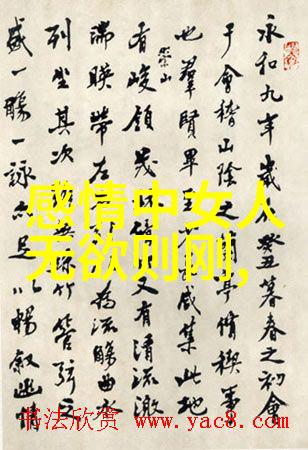 永和九年歲在癸丑暮春之初會
于會稽山陰之蘭亭脩稧事
也羣賢畢至咸集此地
崇山
有峻領茂林又有清流激
湍暎帶左為流觴曲水
列坐其次無絲竹管弦之
盛一觴一詠亦足以暢敘幽情
感情中女人
无欲则刚,
书法欣赏 www.yac8.com